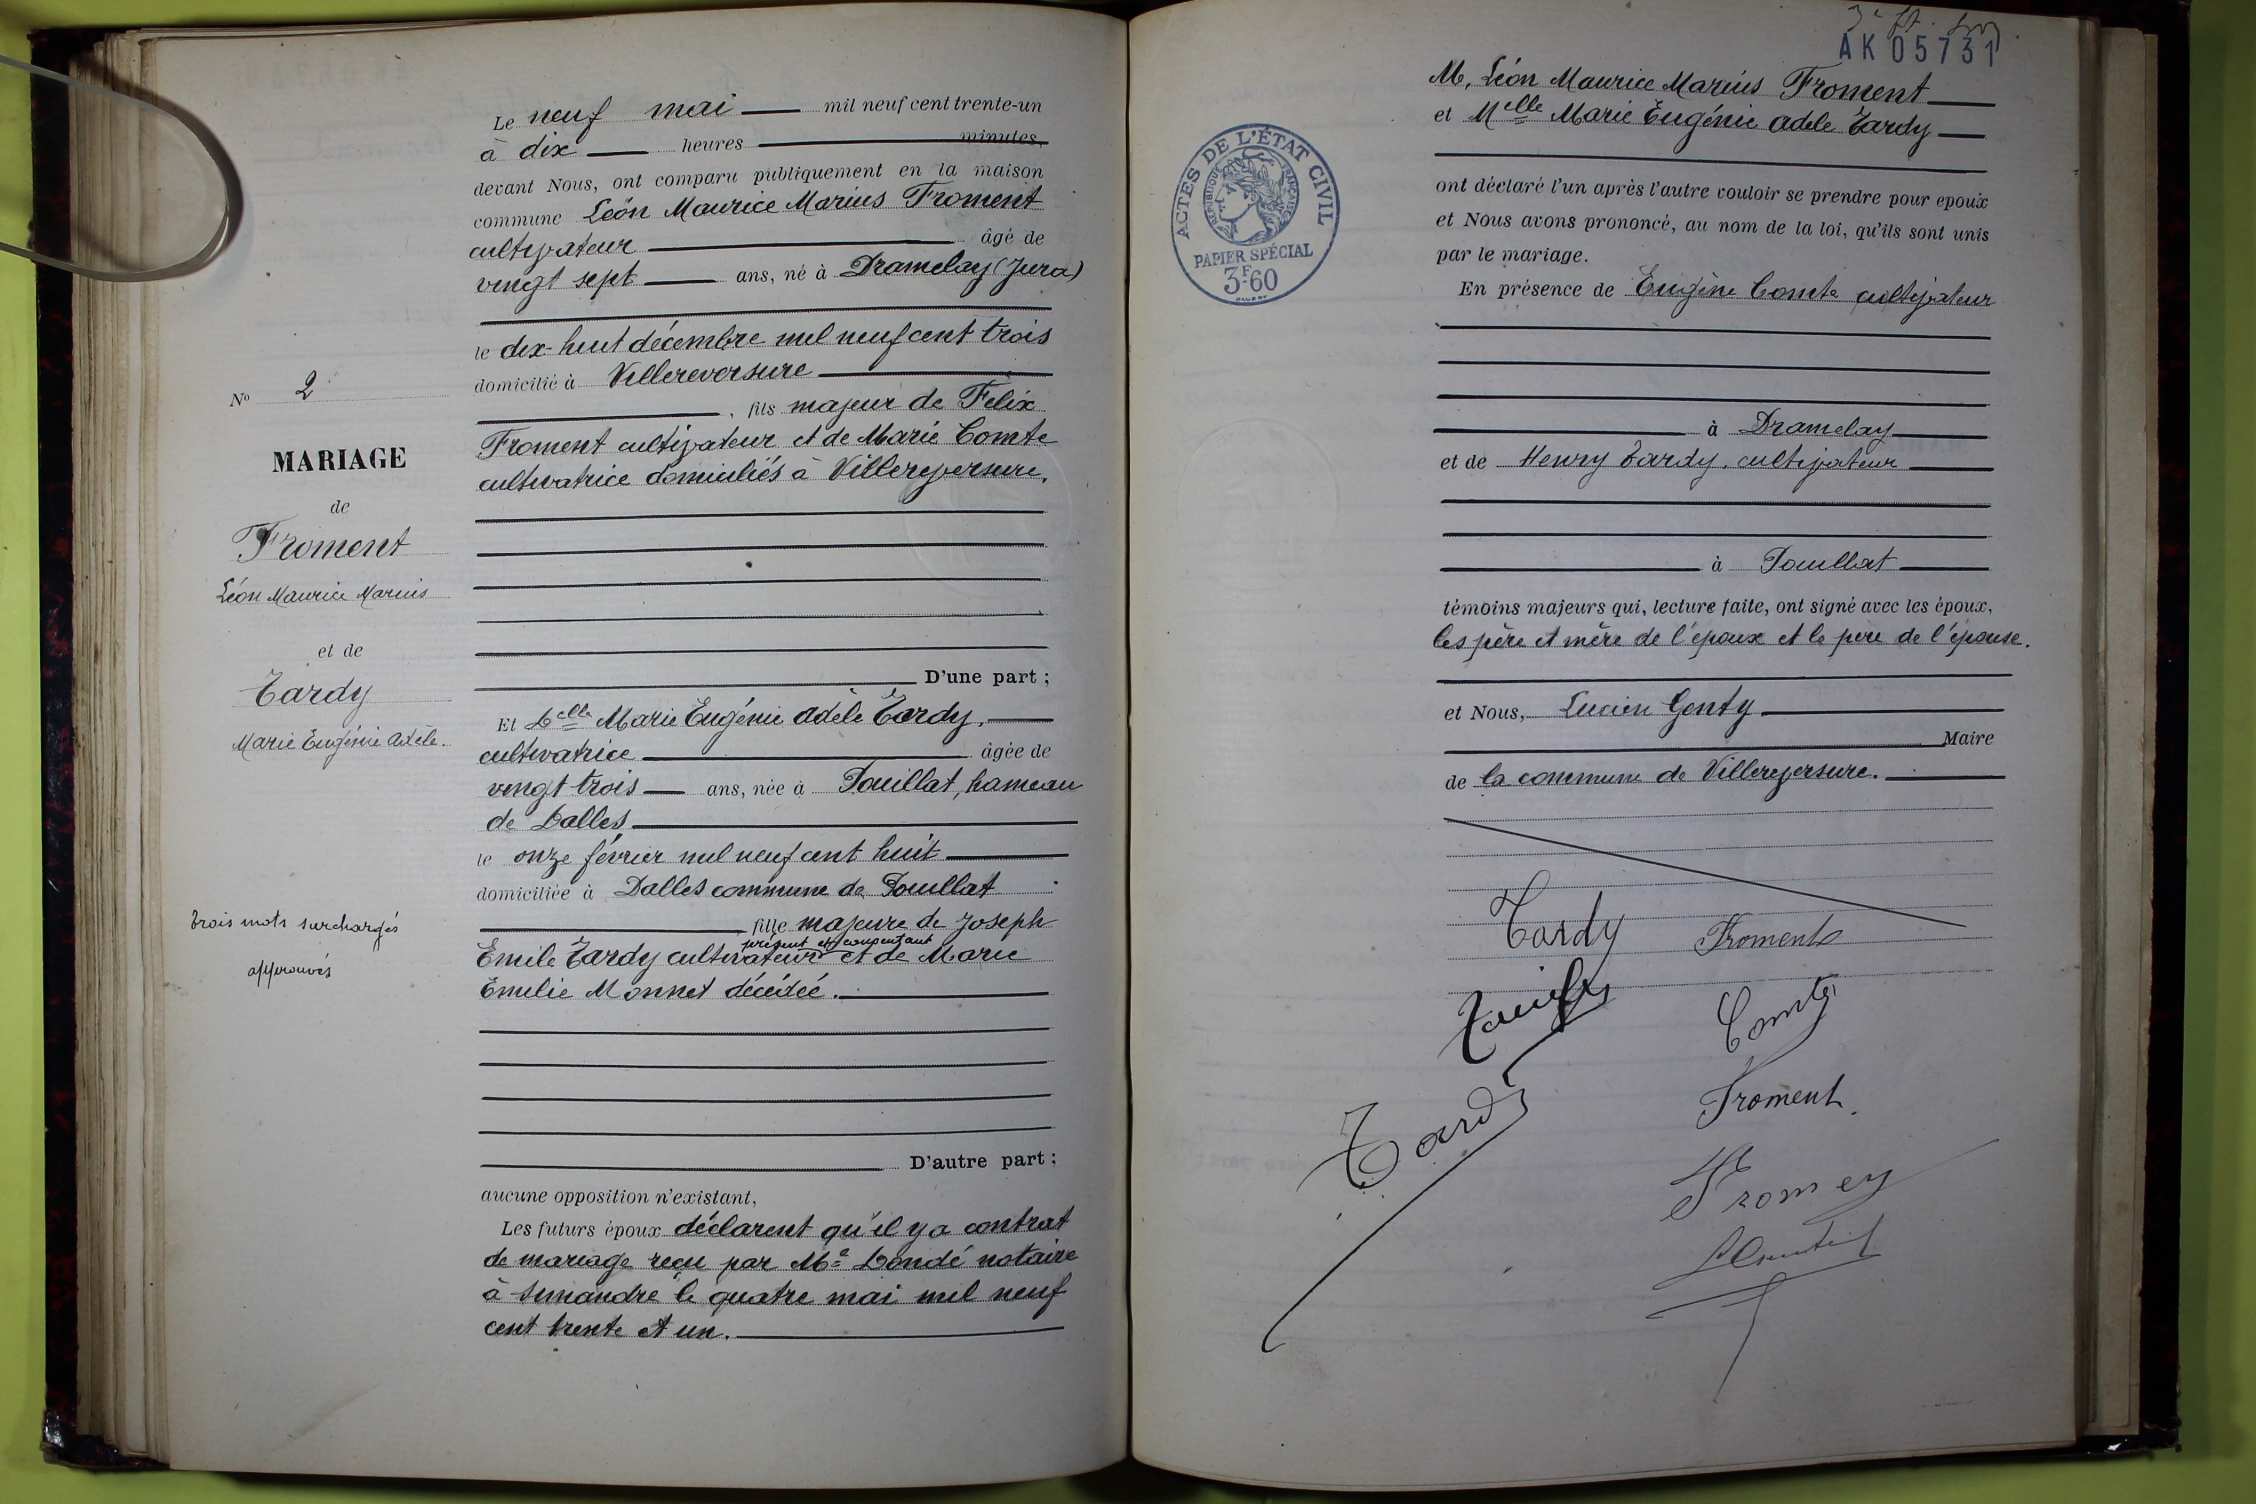 Le neuf mai mil neuf cent trente-un
à dix heures minutes,
devant Nous, ont comparu publiquement en la maison
commune Léon Maurice Marius Froment
cultivateur âgé de
vingt sept ans, né à Dramelay (Jura)
le dix-huit décembre mil neuf cent trois
domicilié à Villereversure
, fils majeur de Félix
Froment cultivateur et de Marie Comte
cultivatrice domiciliés à Villereversure.
D'une part ;
Et Delle Marie Eugénie Adèle Tardy,
cultivatrice âgée de
vingt trois ans, née à Pouillat, hameau
de Dalles
le onze février mil neuf cent huit
domiciliée à Dalles commune de Pouillat
fille majeure de Joseph
présent et consentant
Emile Tardy cultivateur et de Marie
Emilie Monnet décédée.
D'autre part ;
aucune opposition n'existant,
Les futurs époux déclarent qu'il y a contrat
de mariage reçu par Me Dondé notaire
à Simandre le quatre mai mil neuf
cent trente et un.
No 2
MARIAGE
de
Froment
Léon Maurice Marius
et de
Tardy
Marie Eugénie Adèle.
Trois mots surchargés
approuvés
AK 05731
M. Léon Maurice Marius Froment
et Melle Marie Eugénie Adèle Tardy
ont déclaré l'un après l'autre vouloir se prendre pour epoux
et Nous avons prononcé, au nom de la loi, qu'ils sont unis
par le mariage.
En présence de Eugène Comte cultivateur
à Dramelay
et de Henry Tardy. cultivateur
à Pouillat
témoins majeurs qui, lecture faite, ont signé avec les époux,
les père et mère de l'époux et le père de l'épouse.
et Nous, Lucien Genty
Maire
de la commune de Villereversure.
ACTES DE L'ÉTAT CIVIL
RÉPUBLIQUE FRANÇAISE
PAPIER SPÉCIAL
3F60
Tardy Froment
Comte
Tardy
Froment.